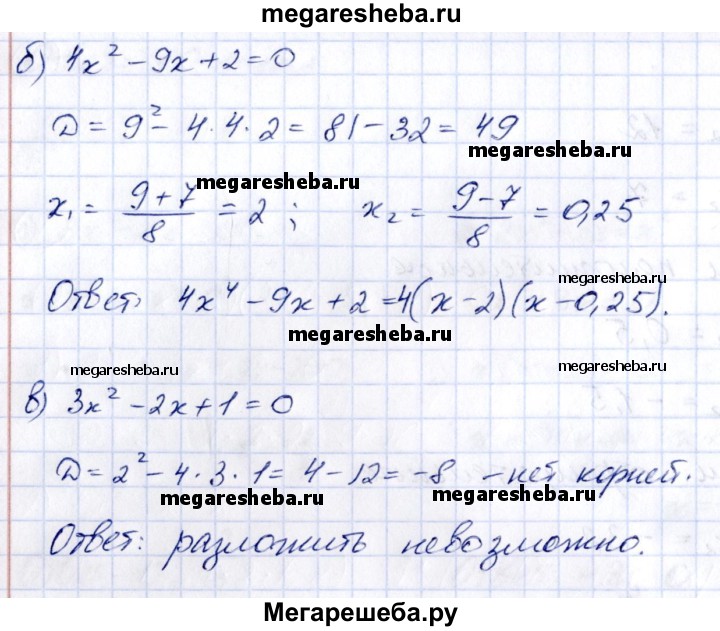 megaresheba.ru
б) 4x² - 9x + 2 = 0
D = 9² - 4 · 4 · 2 = 81 - 32 = 49
megaresheba.ru
megaresheba.ru
x₁ = (9 + 7)/8 = 2 ; x₂ = (9 - 7)/8 = 0,25
megaresheba.ru
Ответ: 4x⁴ - 9x + 2 = 4(x - 2)(x - 0,25).
megaresheba.ru
megaresheba.ru
megaresheba.ru
в) 3x² - 2x + 1 = 0
D = 2² - 4 · 3 · 1 = 4 - 12 = -8 - нет корней.
megaresheba.ru
megaresheba.ru
Ответ: разложить невозможно.
Мегарешеба.ру